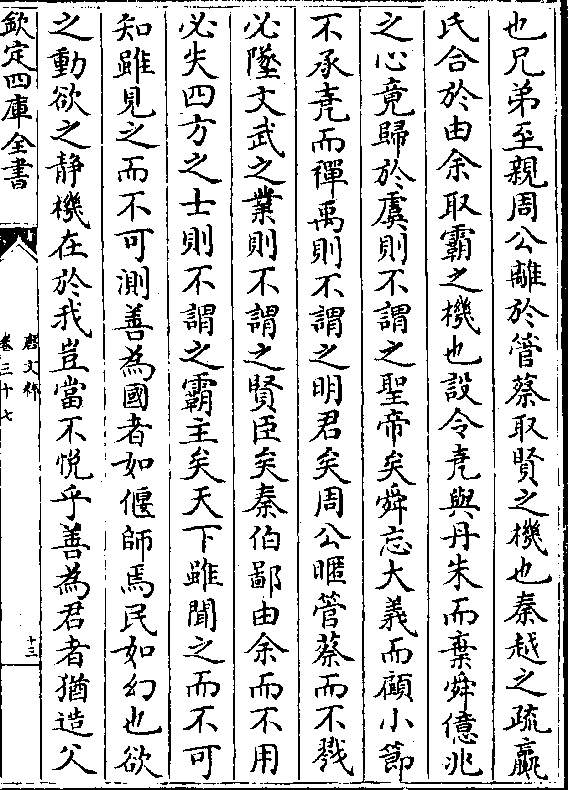 也兄弟至親周公離於管蔡取賢之機也秦越之疏嬴
氏合於由余取霸之機也設令堯與丹朱而棄舜億兆
之心竟歸於虞則不謂之聖帝矣舜忘大義而顧小節
不承堯而禪禹則不謂之明君矣周公暱管蔡而不戮
必墜文武之業則不謂之賢臣矣秦伯鄙由余而不用
必失四方之士則不謂之霸主矣天下雖聞之而不可
知雖見之而不可測善為國者如偃師焉民如幻也欲
之動欲之靜機在於我豈當不悅乎善為君者猶造父
欽定四庫全書
唐文粹
卷三十七
十三